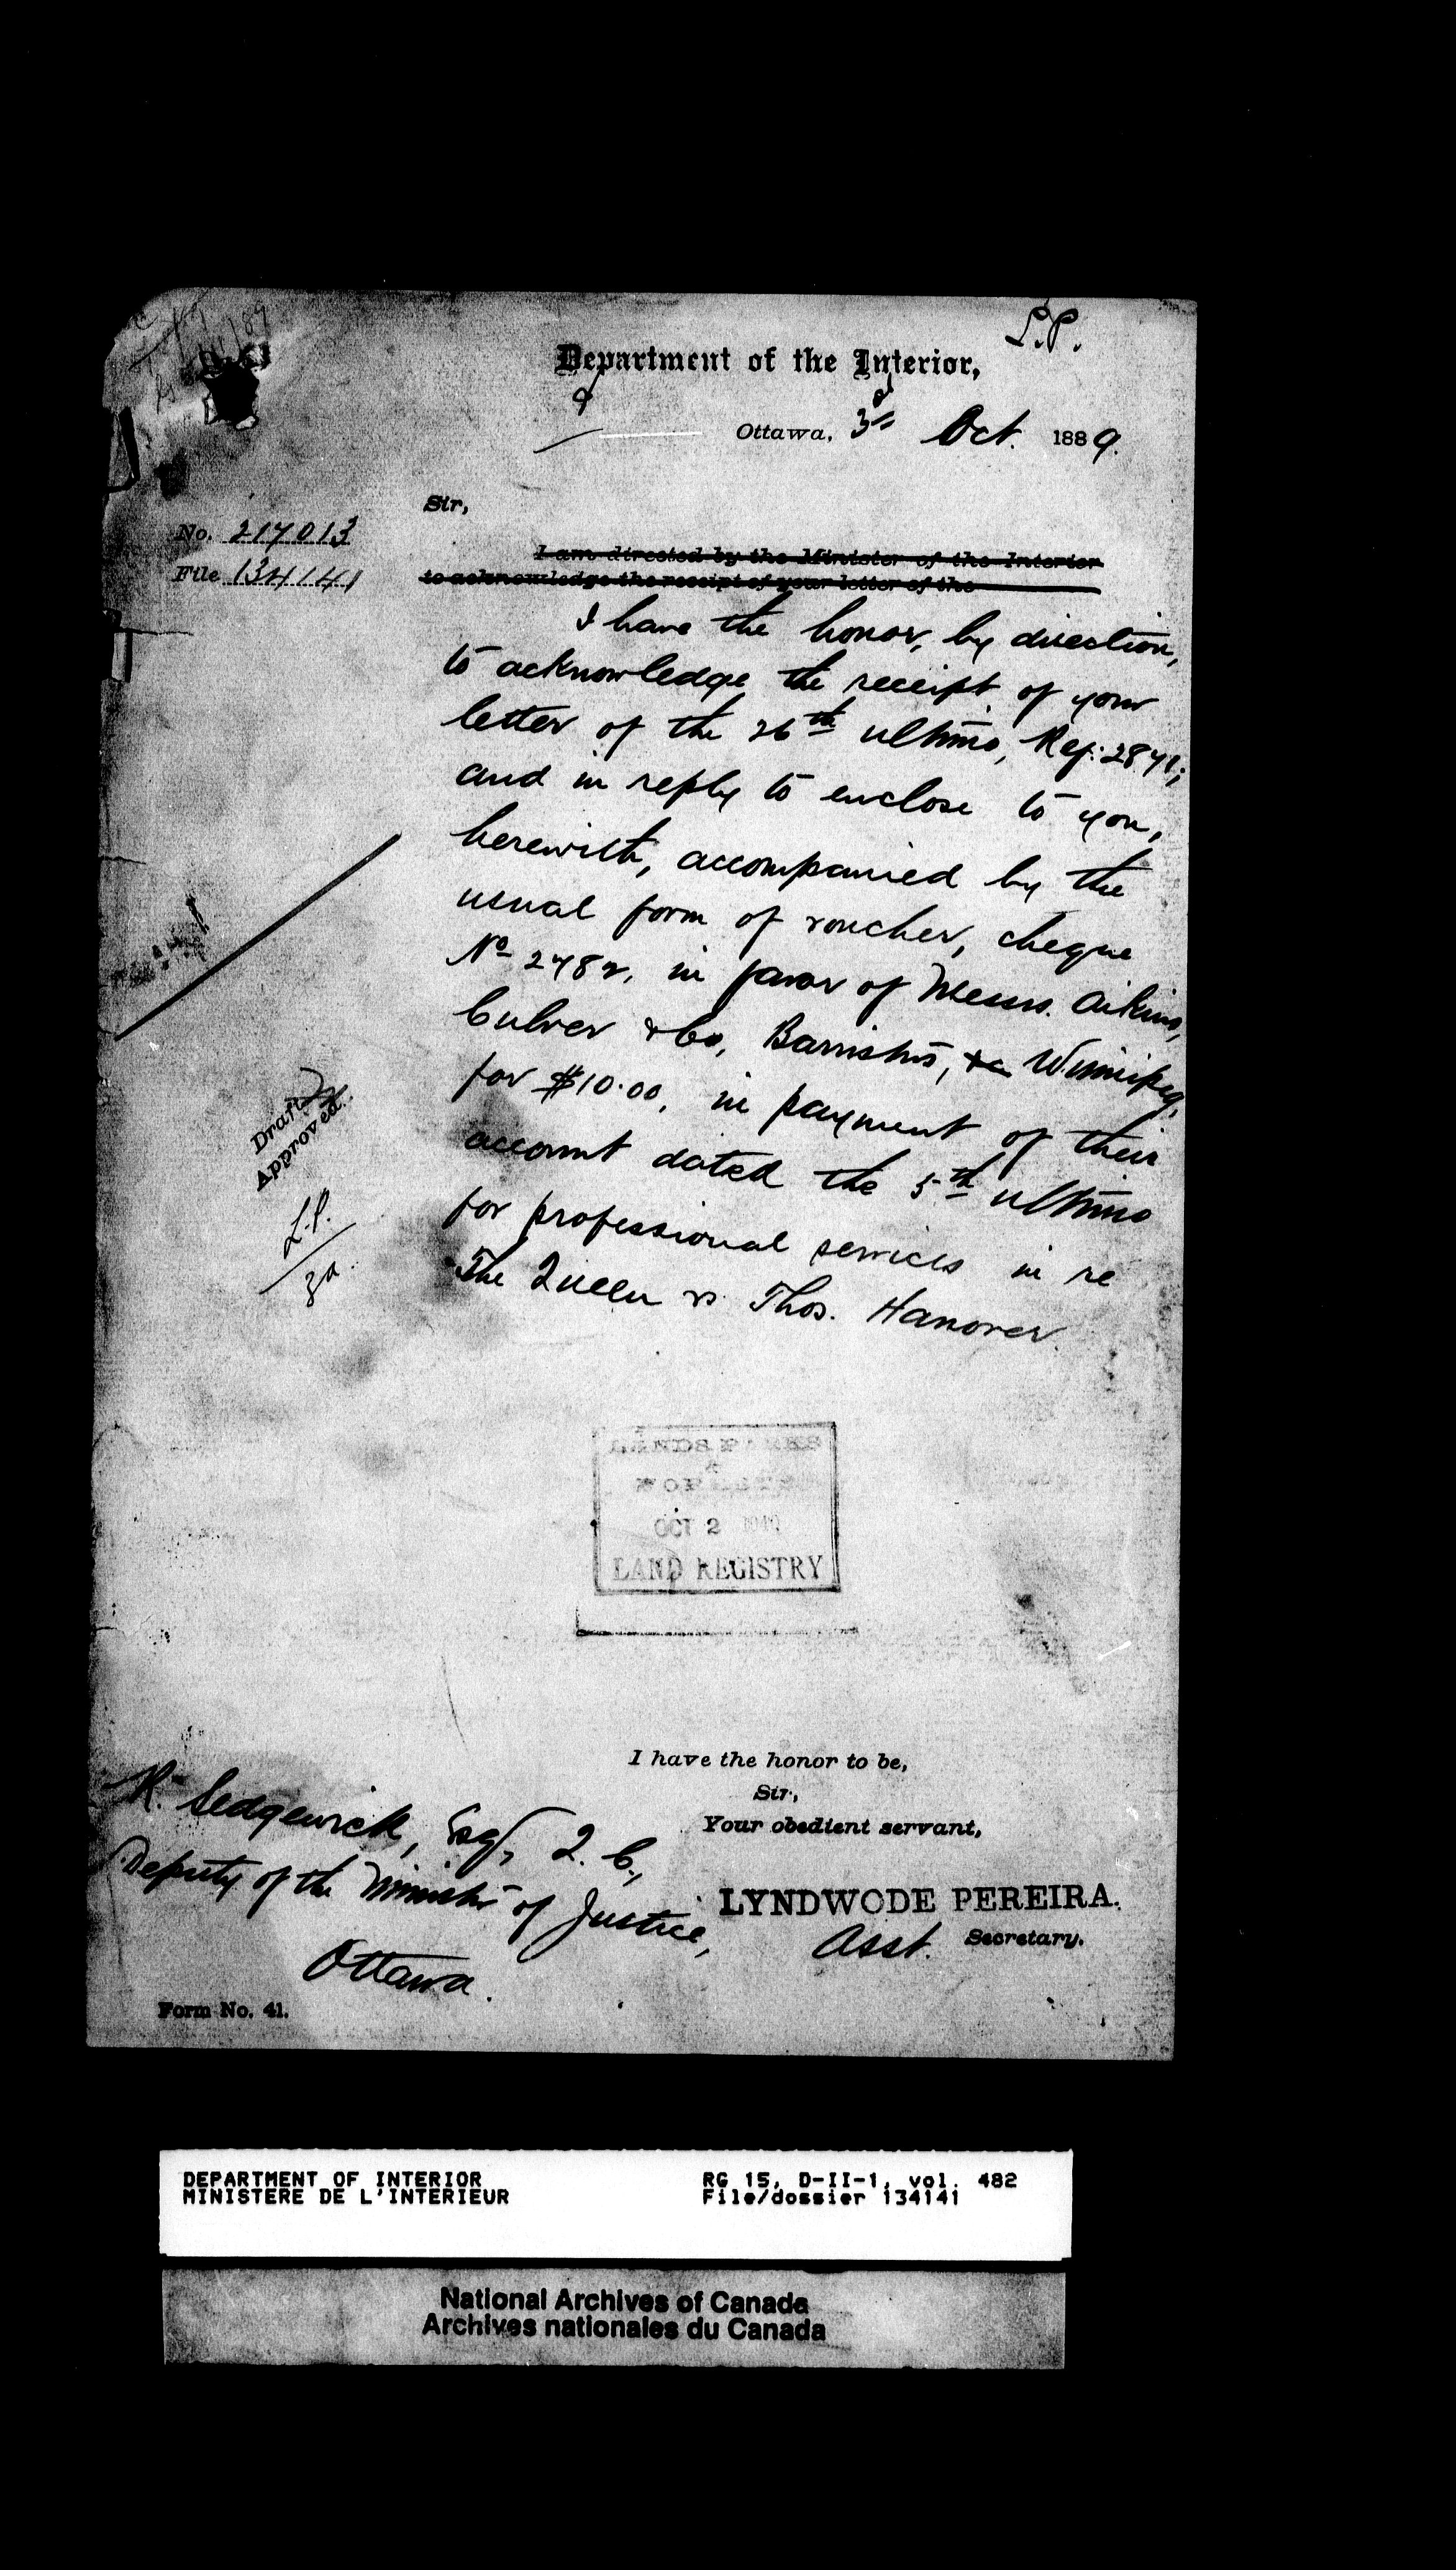 L.P.
Department of the Interior,
Ottawa, 3rd Oct. 1889.
Sir,
No. 217013
File 134141
I am directed by the Minister of the Interior
to acknowledge the receipt of your letter of the
I have the honor, by direction,
to acknowledge the receipt of your
letter of the 26th ultimo, Ref: 2871;
and in reply to enclose to you,
herewith, accompanied by the
usual form of voucher, cheque
No 2782, in favor of Messrs. Aikins,
Culver & Co, Barristers, &c Winnipeg,
for $10.00, in payment of their
account dated the 5th ultimo
for professional services in re
The Queen vs. Thos. Hanover.
Draft
Approved.
L.P.
LANDS PARKS
&
FORESTS
OCT 2
LAND REGISTRY
I have the honor to be,
Sir,
Your obedient servant,
R. Sedgewick, Esq, Q.C.,
Deputy of the Minister of Justice,
Ottawa.
LYNDWODE PEREIRA.
Asst. Secretary.
Form No. 41.
DEPARTMENT OF INTERIOR RG 15, D-II-1, vol. 482
MINISTERE DE L'INTERIEUR File/dossier 134141
National Archives of Canada
Archives nationales du Canada